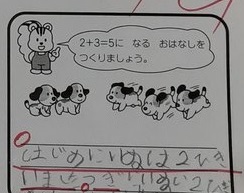 2+3=5に なる おはなしを
つくりましょう。
はじめにいぬは2ひき
います